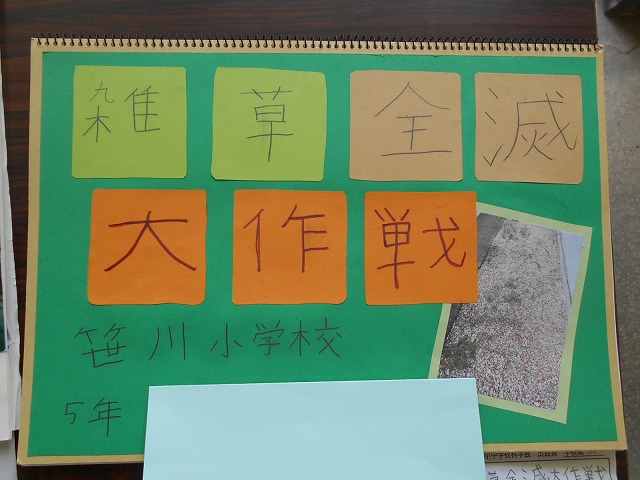 雑草全滅
大作戦
笹川小学校
5年
草全滅大作戦